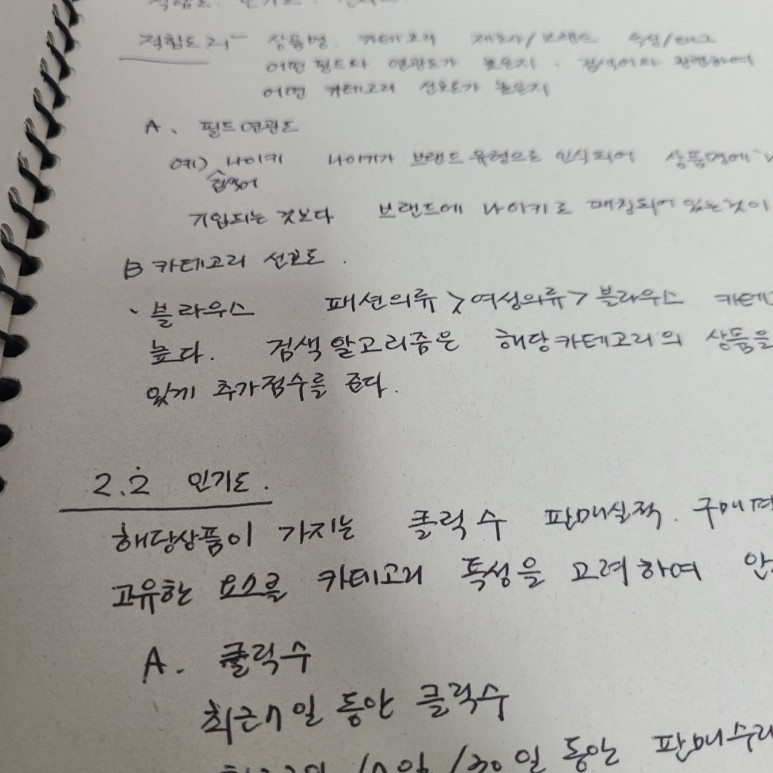 적합도. 인기도.
적합도란 상품명. 카테고리 제조사/브랜드 속성/태그
어떤 필드와 연관도가 높은지. 검색어와 관련하여
어떤 카테고리 선호도가 높은지
A. 필드연관도
예) 나이키 나이키가 브랜드 유형으로 인식되어 상품명에
검색어
기입되는 것보다 브랜드에 나이키로 매칭되어 있는것이
B 카테고리 선호도.
· 블라우스 패션의류 > 여성의류 > 블라우스 카테
높다. 검색 알고리즘은 해당카테고리의 상품을
있게 추가점수를 준다.
2.2 인기도.
해당상품이 가지는 클릭수 판매실적. 구매평
고유한 요소를 카테고리 특성을 고려하여
A. 클릭수
최근 7일 동안 클릭수
/30일 동안 판매수